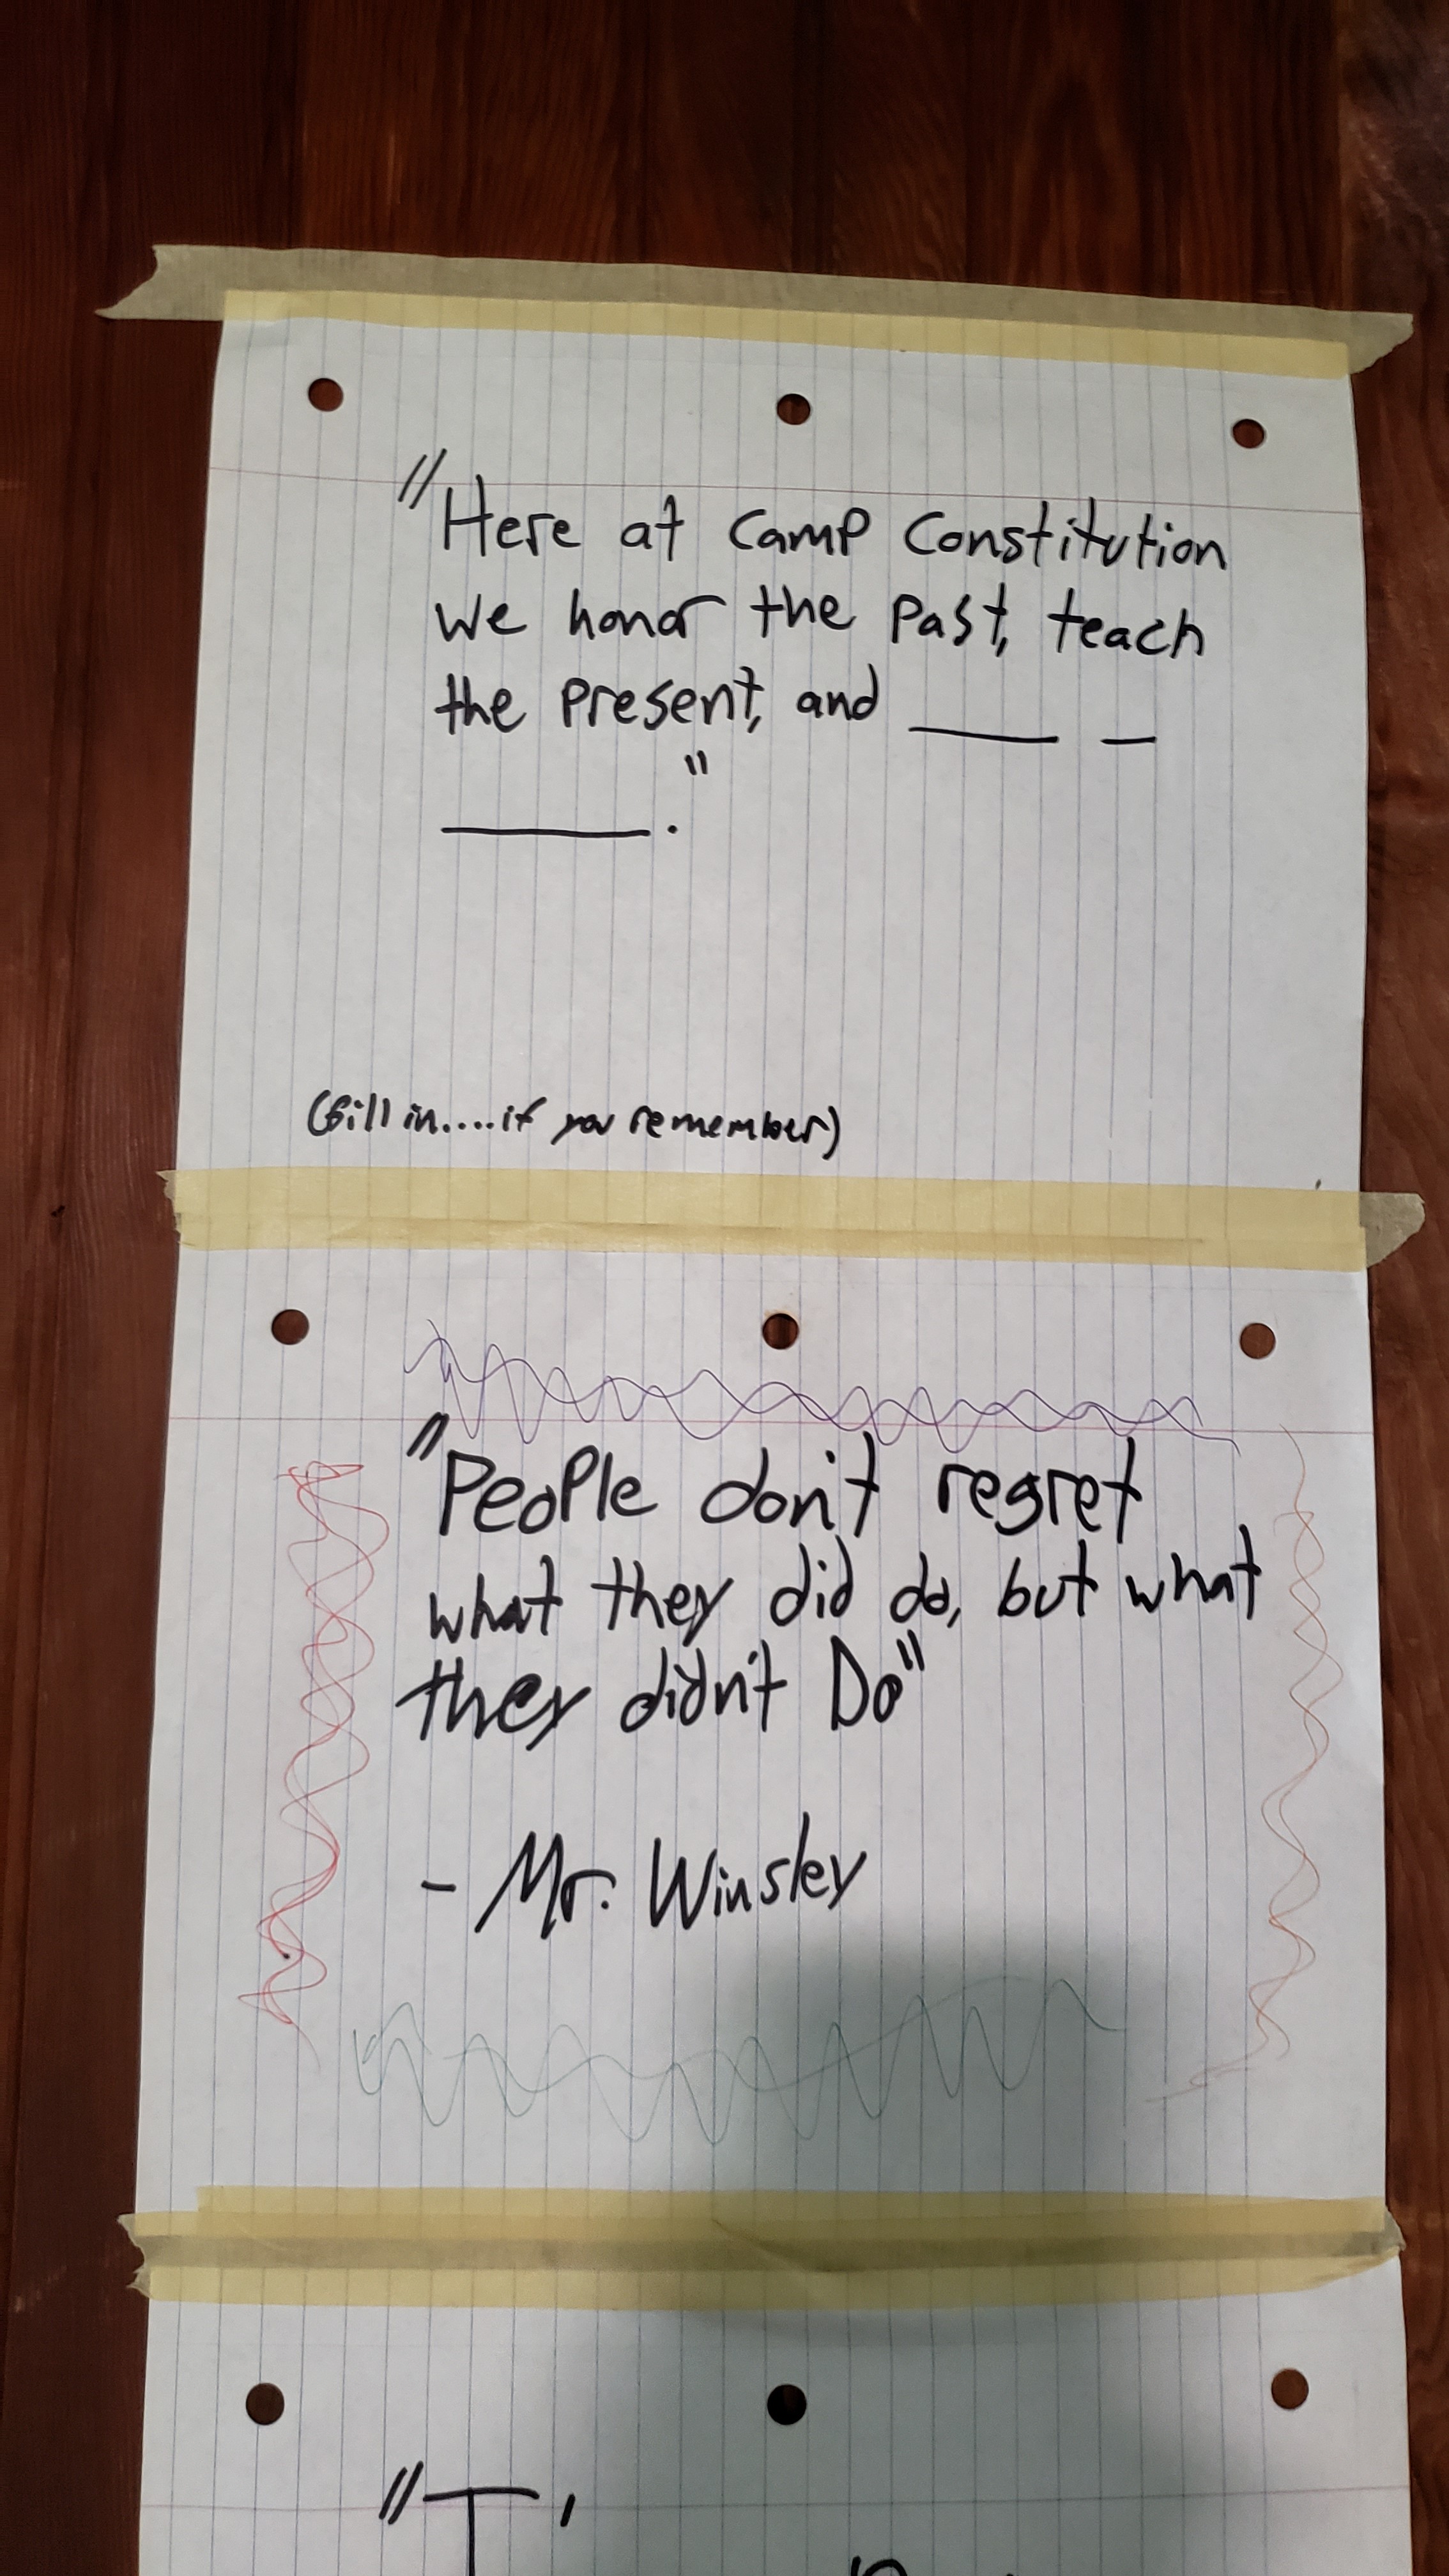 "Here at Camp Constitution
we honor the past, teach
the present, and ____ _
____."
(fill in....if you remember)
"People don't regret
what they did do, but what
they didn't Do"
- Mr. Winsley
"I'